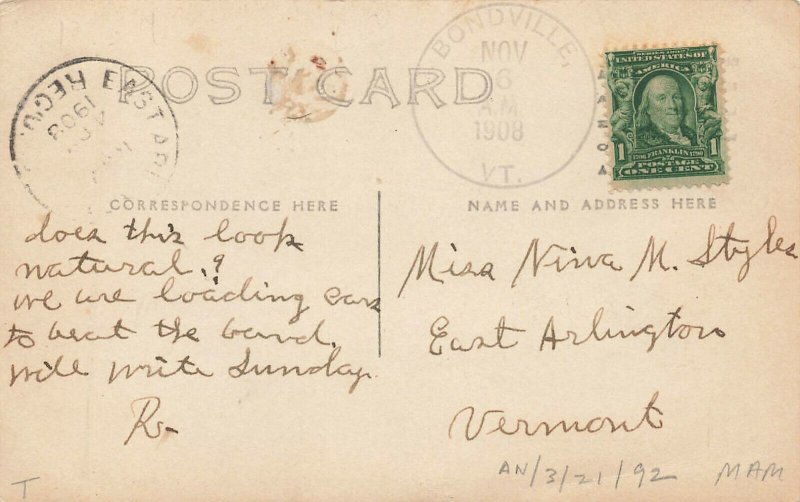 POST CARD
BONDVILLE,
NOV
6
A.M.
1908
VT.
REC'D.
EAST
1908
SERIES 1902
UNITED STATES OF
AMERICA
1 1
1706 FRANKLIN 1790
POSTAGE
ONE CENT
CORRESPONDENCE HERE
does this look
natural.?
we are loading cars
to beat the band.
will write Sunday.
R-
NAME AND ADDRESS HERE
Miss Nina M. Styles
East Arlington
Vermont
T
AN/3/21/92 MAM